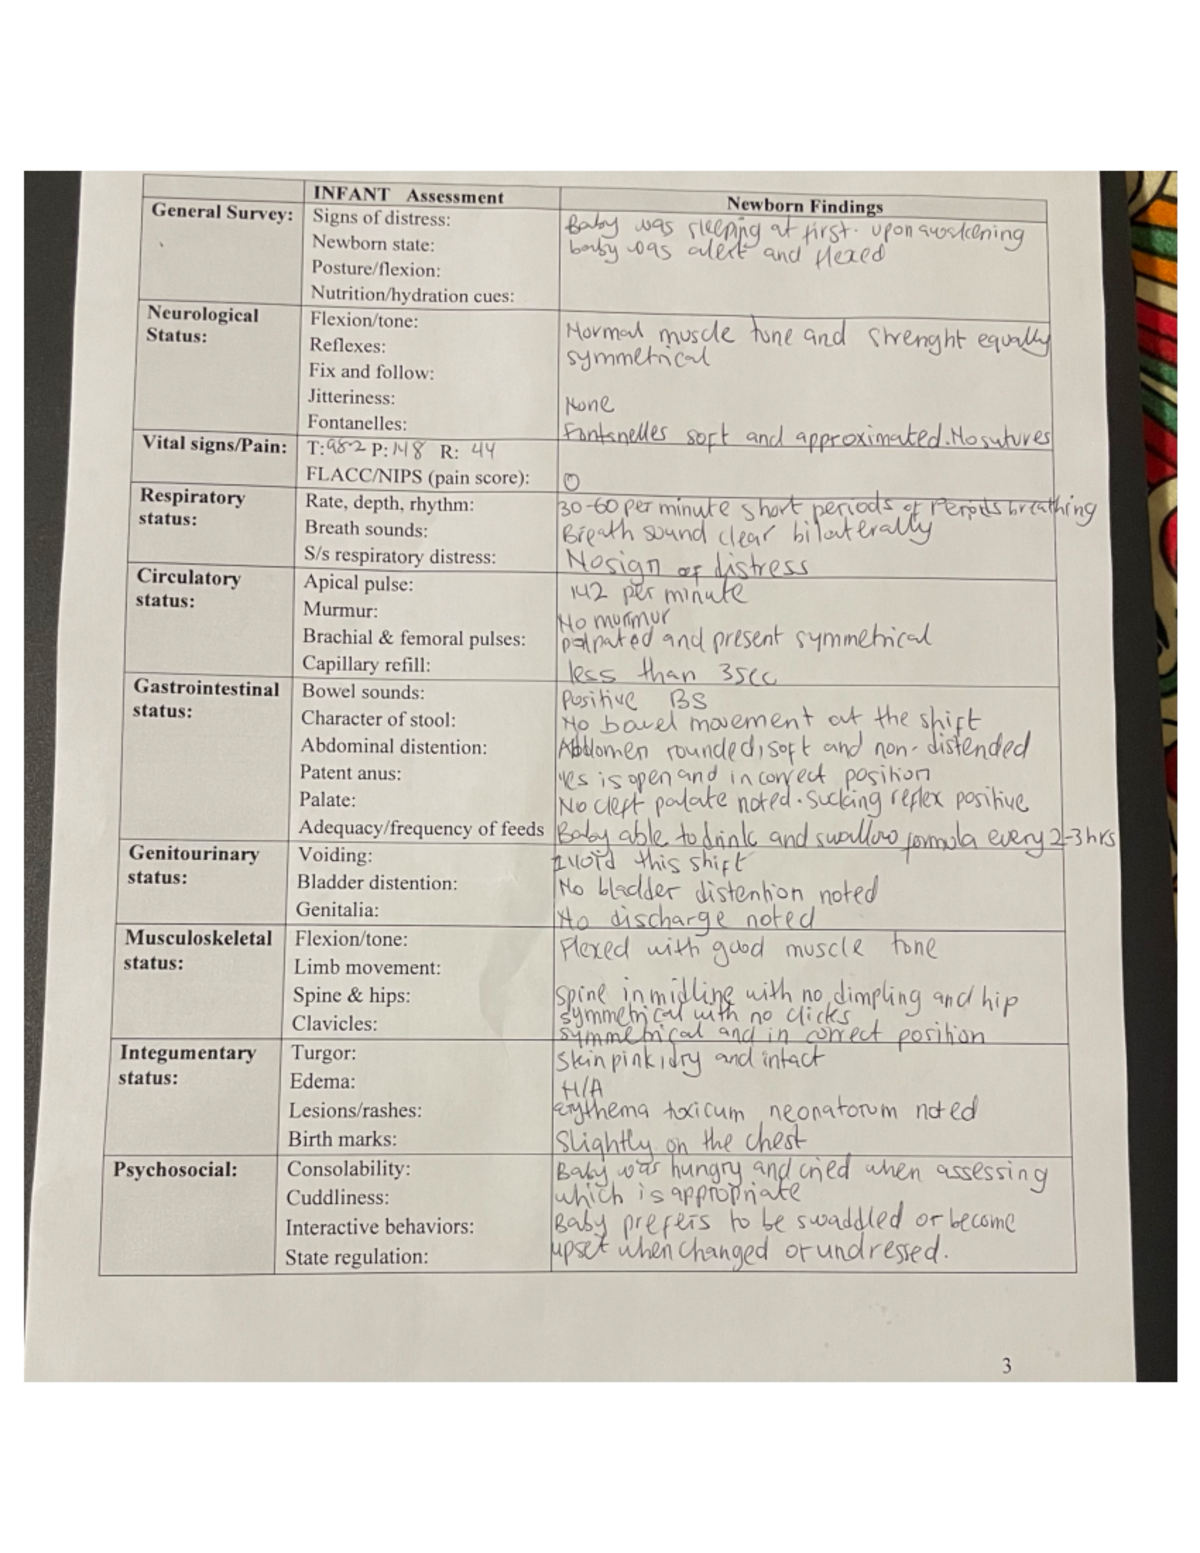 INFANT Assessment
Newborn Findings
General Survey:
Signs of distress:
Baby was sleeping at first. upon awakening
Newborn state:
baby was alert and flexed
Posture/flexion:
Nutrition/hydration cues:
Neurological
Status:
Flexion/tone:
Normal muscle tone and strenght equally
Reflexes:
symmetrical
Fix and follow:
Jitteriness:
None
Fontanelles:
Fontanelles soft and approximated. No sutures
Vital signs/Pain:
T: 98.2 P: 148 R: 44
FLACC/NIPS (pain score):
0
Respiratory
status:
Rate, depth, rhythm:
30-60 per minute short periods of breathing
Breath sounds:
Breath sound clear bilaterally
S/s respiratory distress:
No sign of distress
Circulatory
status:
Apical pulse:
142 per minute
Murmur:
No murmur
Brachial & femoral pulses:
palpated and present symmetrical
Capillary refill:
less than 3sec
Gastrointestinal
status:
Bowel sounds:
Positive BS
Character of stool:
No bowel movement at the shift
Abdominal distention:
Abdomen rounded, soft and non-distended
Patent anus:
yes is open and in correct position
Palate:
No cleft palate noted. Sucking reflex positive
Adequacy/frequency of feeds
Baby able to drink and swallow formula every 2-3hrs
Genitourinary
status:
Voiding:
1 void this shift
Bladder distention:
No bladder distention noted
Genitalia:
No discharge noted
Musculoskeletal
status:
Flexion/tone:
Flexed with good muscle tone
Limb movement:
Spine & hips:
Spine in midline with no dimpling and hip
symmetrical with no clicks
Clavicles:
symmetrical and in correct position
Integumentary
status:
Turgor:
Skin pink, dry and intact
Edema:
N/A
Lesions/rashes:
erythema toxicum neonatorum noted
Birth marks:
Slightly on the chest
Psychosocial:
Consolability:
Baby was hungry and cried when assessing
Cuddliness:
which is appropriate
Interactive behaviors:
Baby prefers to be swaddled or become
State regulation:
upset when changed or undressed.
3